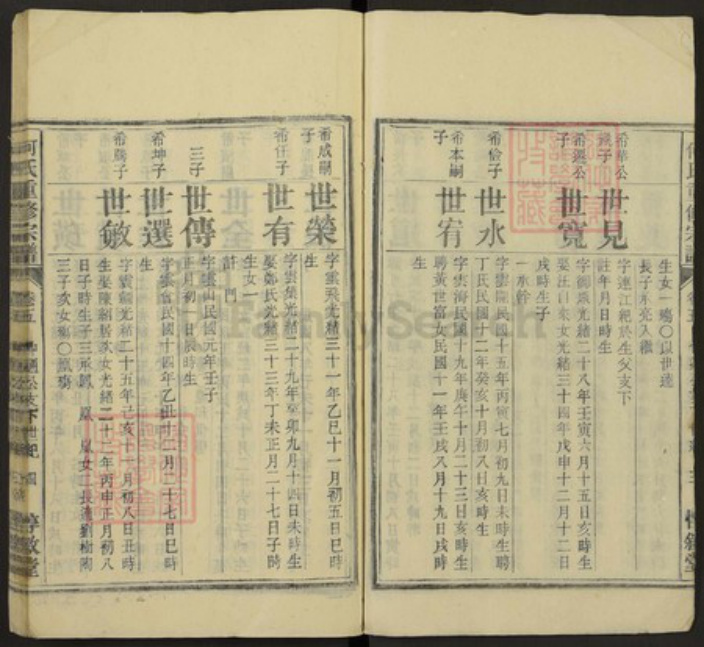 生女一殤○以世達
長子承亮入繼
希華公
子
世見
字連江紀於生父支下
註年月日時生
希鑑公
子
世寬
光緒二十八年壬寅六月十五日亥時生
娶汪自來女光緒三十四年戊申十二月十二日
戌時生子
一承幹
希倫子
世水
字雲陽民國十五年丙寅七月初九日未時生聘
丁氏民國十二年癸亥十月初八日亥時生
希本嗣
子
世宥
字雲海民國十九年庚午十月二十三日亥時生
聘黃世富女民國十一年壬戌八月十九日戌時
生
希成嗣
子
世榮
字雲飛光緒三十一年乙巳十一月初五日巳時
生
希任子
世有
字雲集光緒二十九年癸卯九月十四日未時生
娶鄭氏光緒三十三年丁未正月二十七日子時
生女一
三子
世傳
字雲山民國元年壬子
正月初一日辰時生
希坤子
世選
字雲 民國十四年乙丑十二月二十七日巳時
生
希 子
世敏
字雲 光緒二十五年己亥十一月初八日丑時
生娶陳 女光緒二十二年丙申正月初八
日子時生子三承鳳
女二長適劉樹
三子亥女殤○
何氏重修宗譜
卷五
支下世紀
惇敘堂
FamilySearch